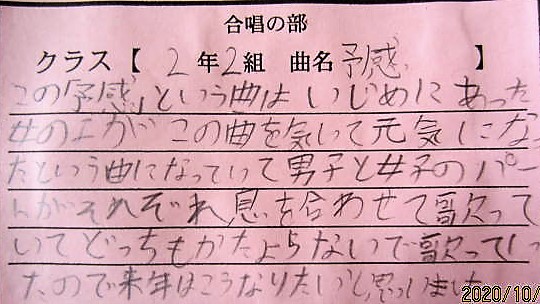 合唱の部
クラス【 2年2組 曲名 予感 】
この「予感」という曲は いじめにあった
女の子が この曲を気いて元気にな
たという曲になっていて男子と女子のパー
トがそれぞれ息を合わせて歌って
いてどっちもかたよらないで歌ってい
たので来年はこうなりたいと思いました
2020/10/